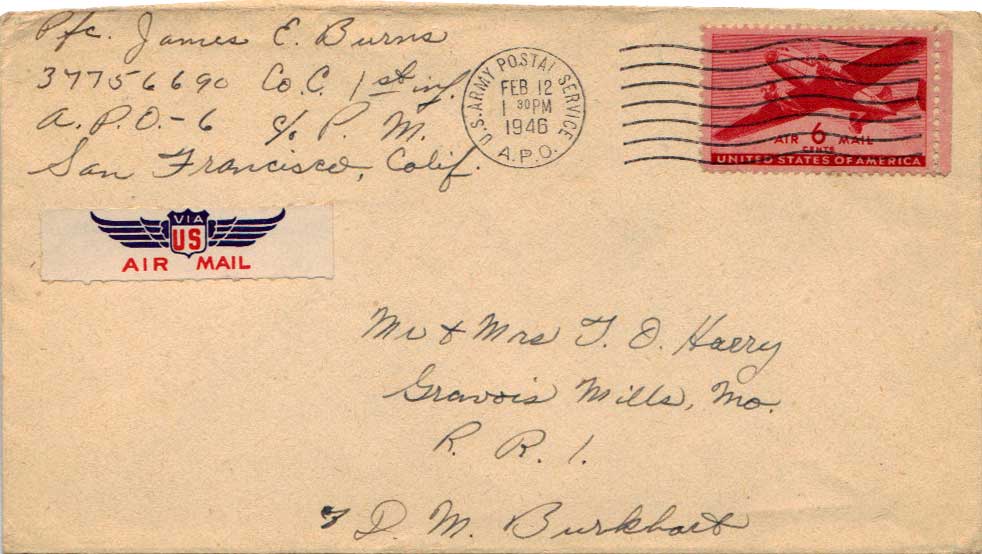 Pfc. James E. Burns
37756690 Co. C. 1st inf.
A.P.O.-6 c/o P. M.
San Francisco, Calif.
U.S. ARMY POSTAL SERVICE
FEB 12
1 30 PM
1946
A.P.O.
AIR 6 MAIL
CENTS
UNITED STATES OF AMERICA
VIA
US
AIR MAIL
Mr & Mrs T. O. Harry
Gravois Mills, Mo.
R. R. 1.
D. M. Burkhart